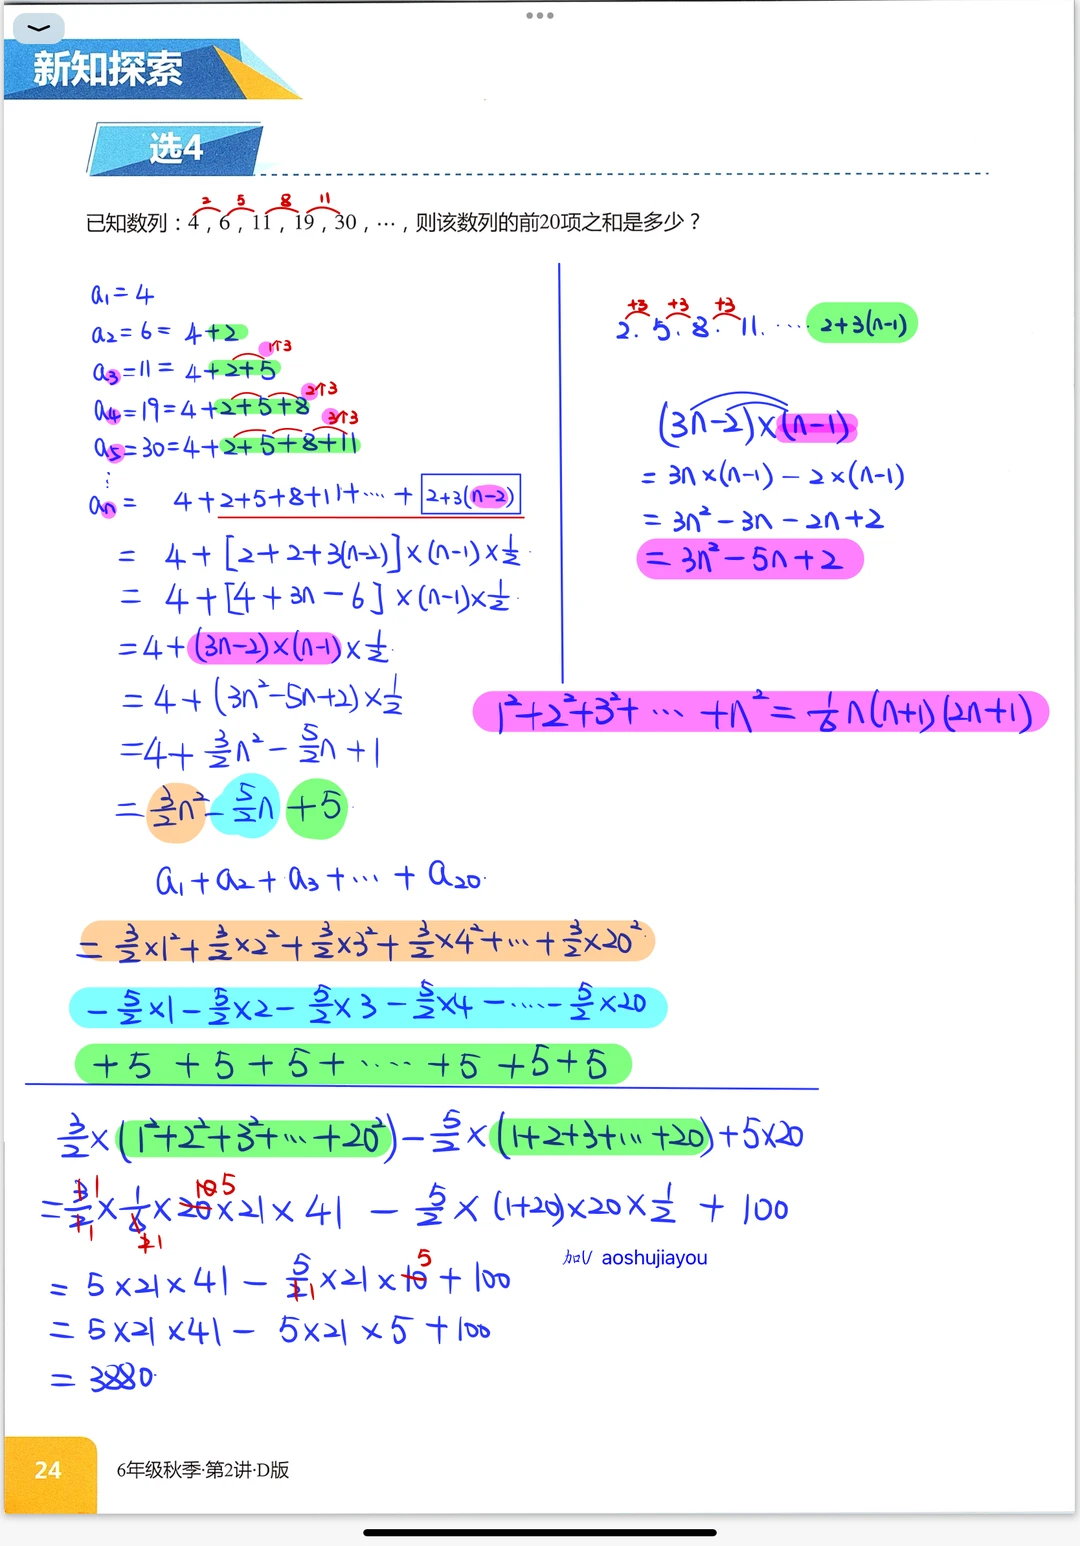 新知探索
选4
2 5 8 11
已知数列：4，6，11，19，30，⋯，则该数列的前20项之和是多少？
a₁=4
a₂=6= 4+2
1个3
a₃=11= 4+2+5
2个3
a₄=19=4+2+5+8
3个3
a₅=30=4+2+5+8+11
⋮
aₙ= 4+2+5+8+11+⋯+ 2+3(n-2)
= 4+[2+2+3(n-2)]×(n-1)×1/2
= 4+[4+3n-6]×(n-1)×1/2
=4+(3n-2)×(n-1)×1/2
=4+(3n²-5n+2)×1/2
=4+3/2n²-5/2n+1
=3/2n²-5/2n+5
+3 +3 +3
2. 5. 8. 11. ⋯⋯ 2+3(n-1)
(3n-2)×(n-1)
= 3n×(n-1)-2×(n-1)
= 3n²-3n-2n+2
= 3n²-5n+2
1²+2²+3²+⋯+n²=1/6n(n+1)(2n+1)
a₁+a₂+a₃+⋯+a₂₀
=3/2×1²+3/2×2²+3/2×3²+3/2×4²+⋯+3/2×20²
-5/2×1-5/2×2-5/2×3-5/2×4-⋯⋯-5/2×20
+5+5+5+⋯⋯+5+5+5
3/2×(1²+2²+3²+⋯+20²)-5/2×(1+2+3+⋯+20)+5×20
1 10 5
=3/2×1/6×20×21×41-5/2×(1+20)×20×1/2+100
1 2 1
加V aoshujiayou
5
=5×21×41-5/2×21×10+100
1
=5×21×41-5×21×5+100
=3880
24
6年级秋季·第2讲·D版